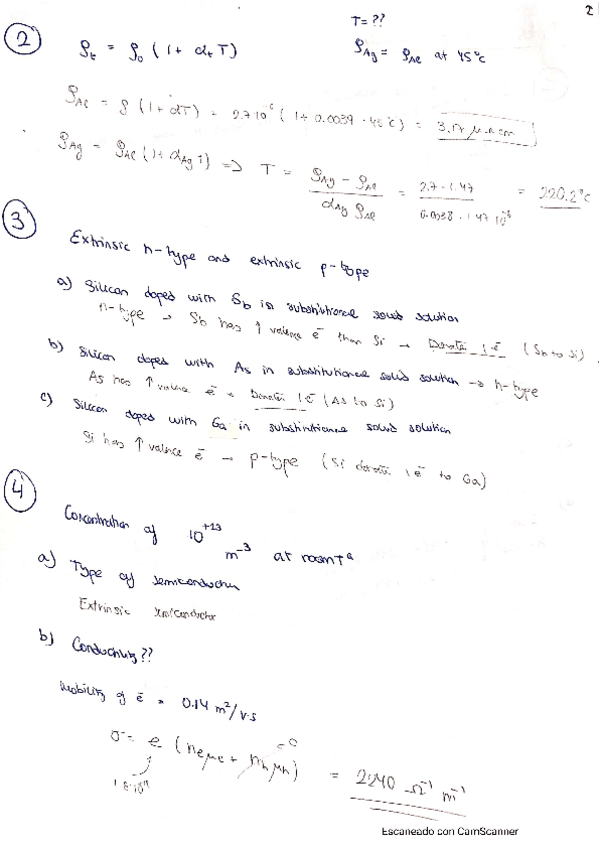 2
T= ??
② ρt = ρo (1 + αt T) ρAg = ρAl at 45°c
ρAl = ρ (1 + αT) = 2.7 10⁻⁶ (1 + 0.0039 · 45°c) = 3.17 μ.Ω cm
ρAg = ρAl (1 + αAg T) => T = (ρAg - ρAl) / (αAg ρAl) = 2.7 - 1.47 / 0.0038 · 1.47 10⁻⁶ = 220.2°c
③ Extrinsic n-type and extrinsic p-type
a) Silicon doped with Sb in substitutional solid solution
n-type → Sb has ↑ valence ē than Si → 1 ē (Sb to Si)
b) Silicon doped with As in substitutional solid solution → n-type
As has ↑ valence ē → 1ē (As to Si)
c) Silicon doped with Ga in substitutional solid solution
Si has ↑ valence ē → p-type (Si 1 ē to Ga)
④ Concentration of 10⁺²³ m⁻³ at room Tª
a) Type of semiconductor
Extrinsic semiconductor
b) Conductivity??
Mobility of ē = 0.14 m²/v.s
σ = e (ne μe + nh μh) = 2240 Ω⁻¹ m⁻¹
=0
Escaneado con CamScanner